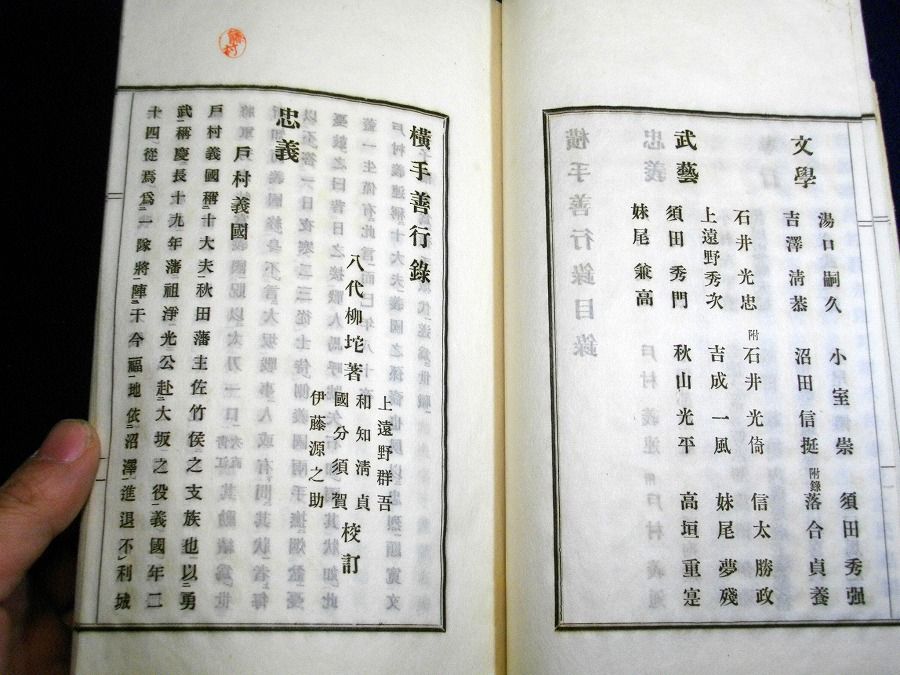 文學
湯口嗣久　小室崇　須田秀强
吉澤淸恭　沼田信挺　附錄落合貞養
武藝
石井光忠　附石井光倚　信太勝政
上遠野秀次　吉成一風　妹尾夢殘
須田秀門　秋山光平　高垣重寔
妹尾兼高
橫手善行錄
八代柳坨著
上遠野群吾
和知淸貞
國分須賀
伊藤源之助
校訂
忠義
戶村義國
戶村義國稱十大夫秋田藩主佐竹侯之支族也以勇
武稱慶長十九年藩祖淨光公赴大坂之役義國年二
十四從焉爲一隊將陣于今福地依沼澤進退不利城